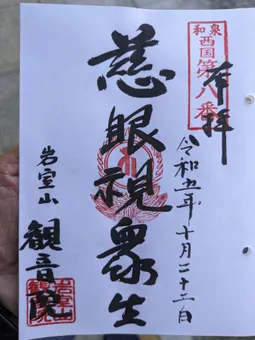 奉拝
和泉
西国第八番
令和五年十月二十二日
慈眼視衆生
岩室山
観音院